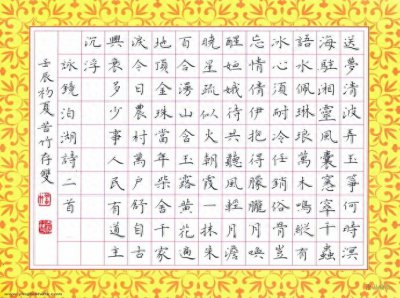 送夢清波弄玉箏何時溟
海駐湘靈風囊窸窣千蟲
語水佩琳琅萬木鳴縱有
冰心須耐冷任銷骨豈
忘情倩伊抱得朦朧月喚
醒姮娥待共聽風輕月澹
曉星疏似火朝霞一抹朱
百合湯山含玉露黃花遍
地頂金珠當年柴舍千家
淚今日農村萬戶舒自古
興衰多少事人民有道主
沉浮
詠鏡泊湖詩二首
壬辰杪夏苦竹存雙